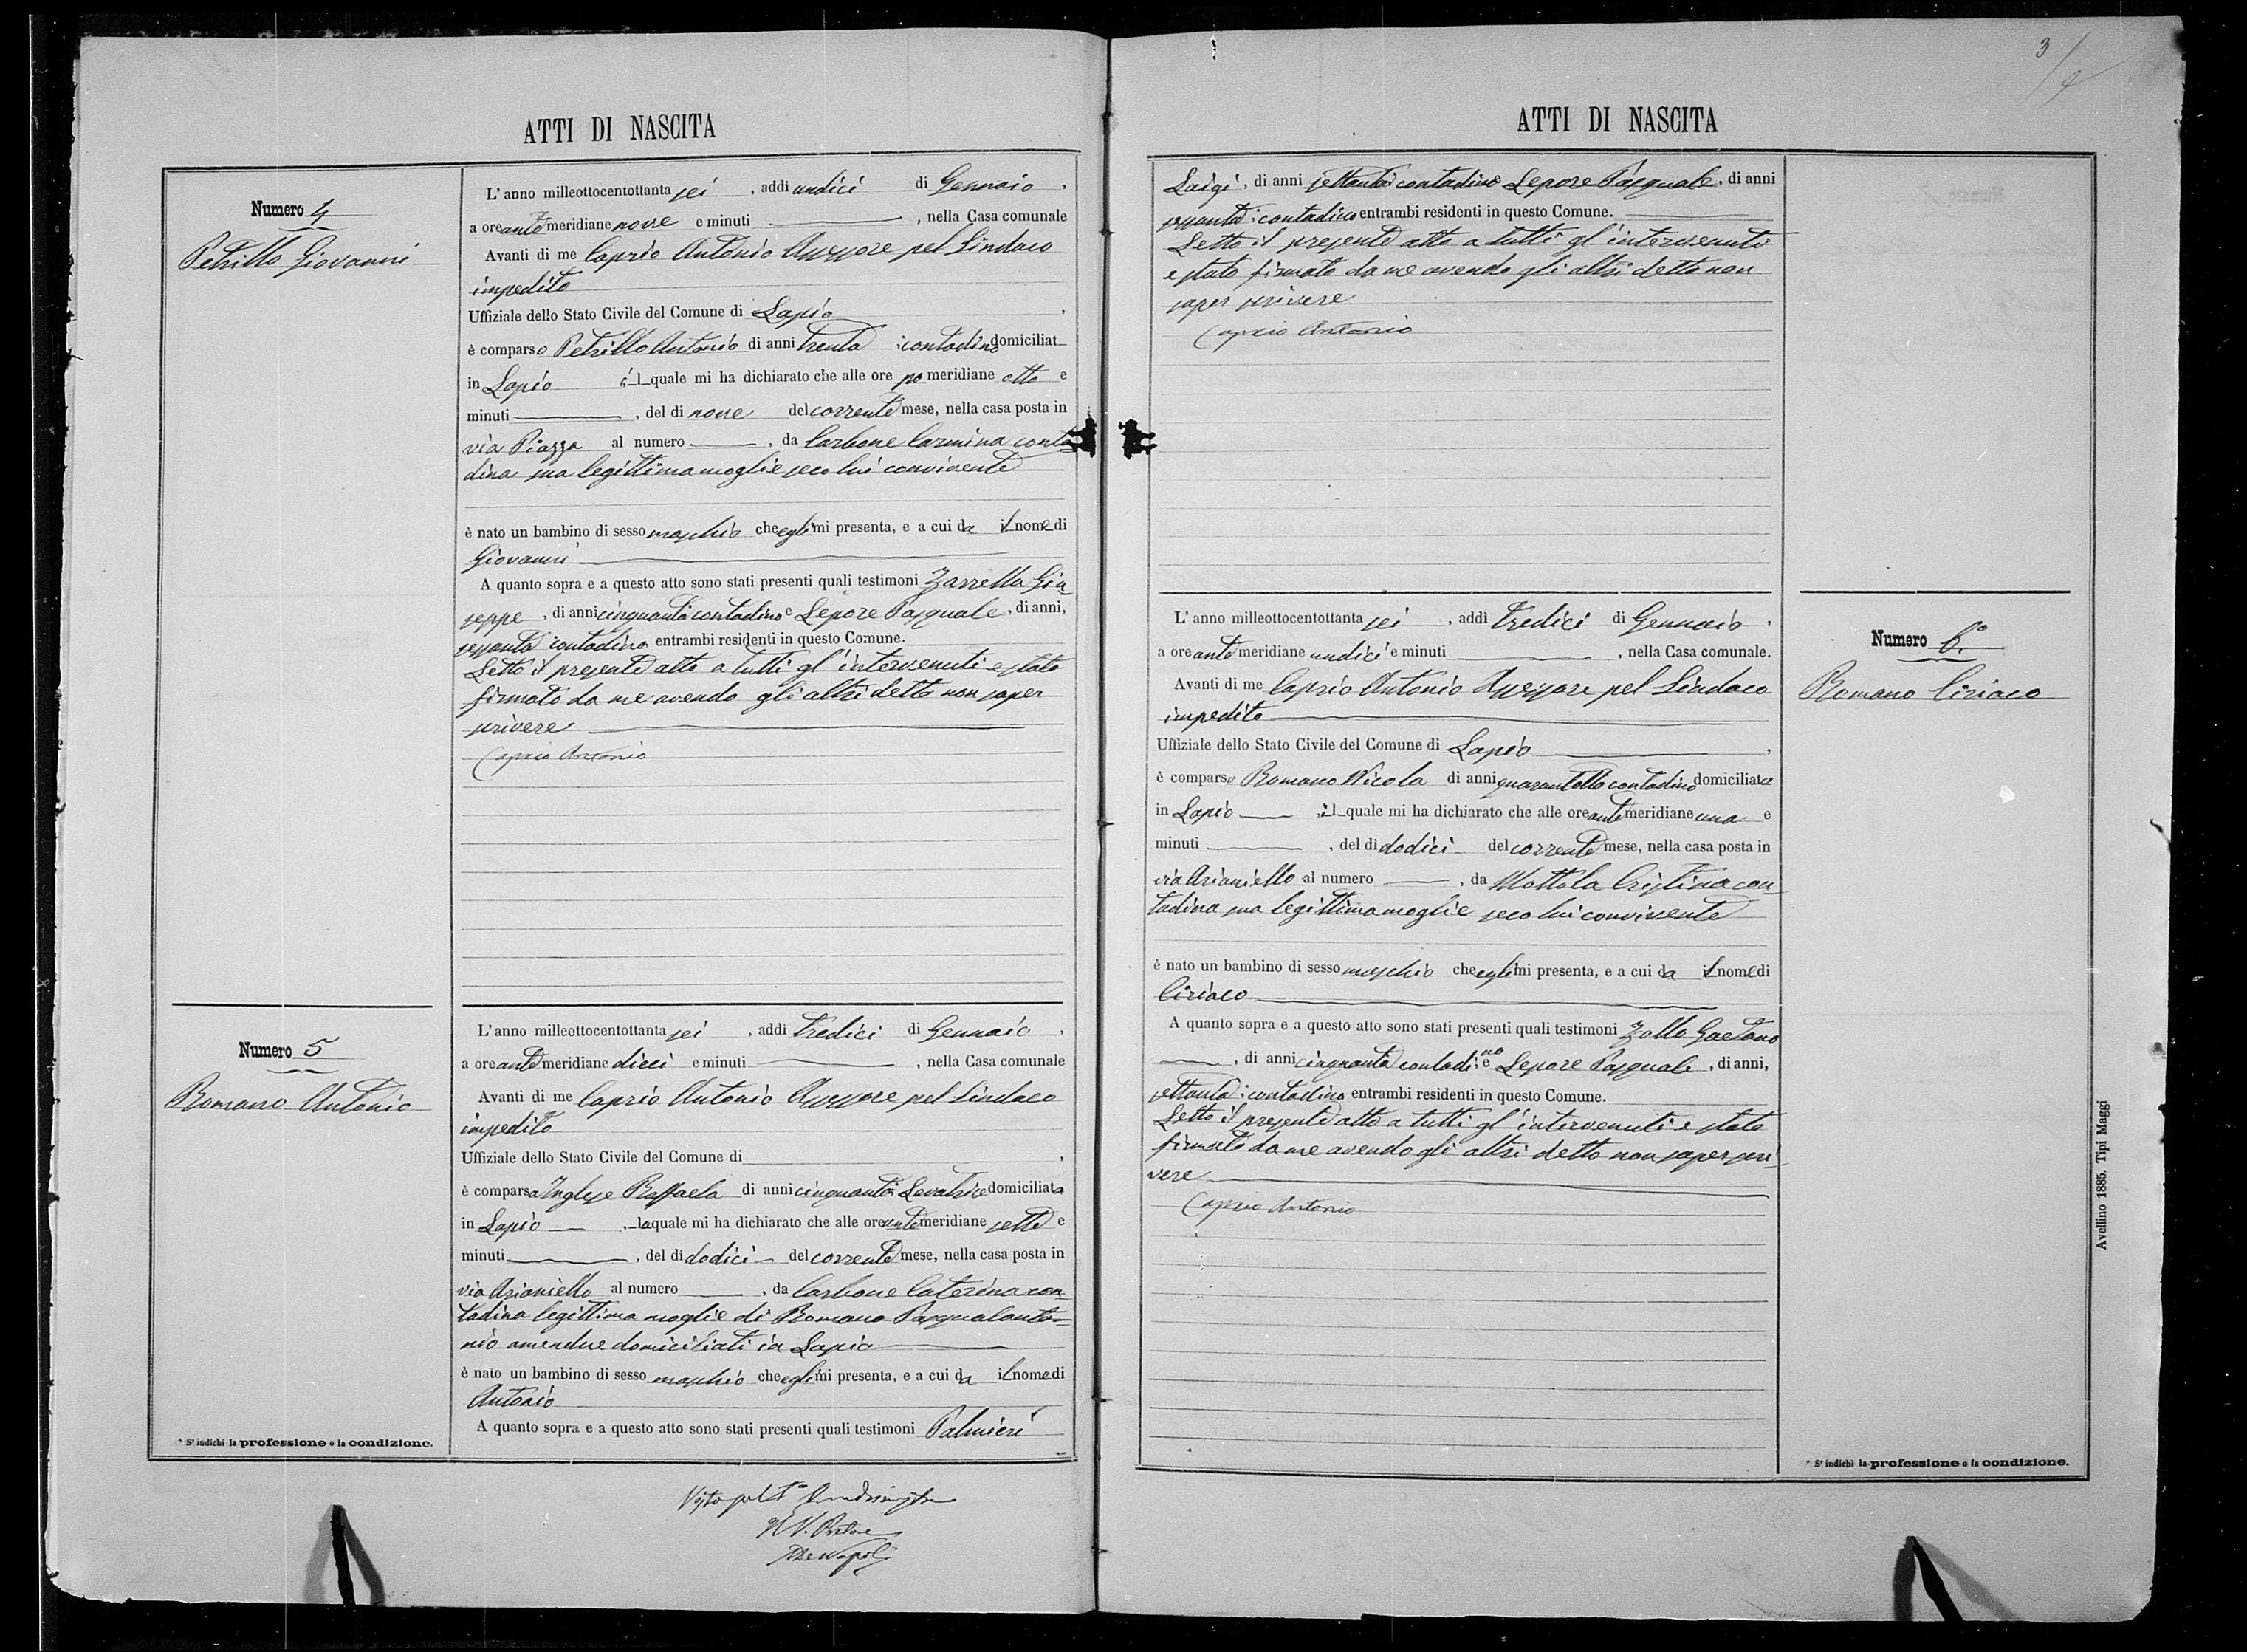 ATTI DI NASCITA
Numero 4
Petrillo Giovanni
L'anno milleottocentottanta sei, addì undici di Gennaio,
a ore antemeridiane nove e minuti, nella Casa comunale
Avanti di me Caprio Antonio Assessore pel Sindaco
impedito
Uffiziale dello Stato Civile del Comune di Lapio,
è comparso Petrillo Antonio di anni trenta contadino domiciliat
in Lapio il quale mi ha dichiarato che alle ore pomeridiane otto e
minuti, del dì nove del corrente mese, nella casa posta in
via Piazza al numero, da Carbone Carmina conta
dina sua legittima moglie seco lui convivente
è nato un bambino di sesso maschio che egli mi presenta, e a cui da il nome di
Giovanni
A quanto sopra e a questo atto sono stati presenti quali testimoni Zarrella Giu
seppe, di anni cinquanta contadino e Lepore Pasquale, di anni,
sessanta contadino entrambi residenti in questo Comune.
Letto il presente atto a tutti gl'intervenuti e stato
firmato da me avendo gli altri detto non saper
scrivere
Caprio Antonio
Numero 5
Romano Antonio
L'anno milleottocentottanta sei, addì tredici di Gennaio,
a ore antemeridiane dieci e minuti, nella Casa comunale
Avanti di me Caprio Antonio Assessore pel Sindaco
impedito
Uffiziale dello Stato Civile del Comune di,
è comparsa Inglese Raffaela di anni cinquanta Levatrice domiciliata
in Lapio, la quale mi ha dichiarato che alle ore antemeridiane sette e
minuti, del dì dodici del corrente mese, nella casa posta in
via Arianiello al numero, da Carbone Caterina con
tadina legittima moglie di Romano Pasqualanto=
nio amendue domiciliati in Lapio
è nato un bambino di sesso maschio che egli mi presenta, e a cui da il nome di
Antonio
A quanto sopra e a questo atto sono stati presenti quali testimoni Palmieri
* S'indichi la professione o la condizione.
De Napoli
3
ATTI DI NASCITA
Luigi, di anni settanta contadino e Lepore Pasquale, di anni
sessanta contadino entrambi residenti in questo Comune.
Letto il presente atto a tutti gl'intervenuti
e stato firmato da me avendo gli altri detto non
saper scrivere
Caprio Antonio
Numero 6.°
Romano Ciriaco
L'anno milleottocentottanta sei, addì tredici di Gennaio,
a ore antemeridiane undici e minuti, nella Casa comunale.
Avanti di me Caprio Antonio Assessore pel Sindaco
impedito
Uffiziale dello Stato Civile del Comune di Lapio,
è comparso Romano Nicola di anni quarantotto contadino domiciliato
in Lapio, il quale mi ha dichiarato che alle ore antemeridiane una e
minuti, del dì dodici del corrente mese, nella casa posta in
via Arianiello al numero, da Mottola Cristina con
tadina sua legittima moglie seco lui convivente
è nato un bambino di sesso maschio che egli mi presenta, e a cui da il nome di
Ciriaco
A quanto sopra e a questo atto sono stati presenti quali testimoni Zollo Gaetano
, di anni cinquanta contadino e Lepore Pasquale, di anni,
settanta contadino entrambi residenti in questo Comune.
Letto il presente atto a tutti gl'intervenuti e stato
firmato da me avendo gli altri detto non saper scri
vere
Caprio Antonio
* S'indichi la professione o la condizione.
Avellino 1885. Tipi Maggi